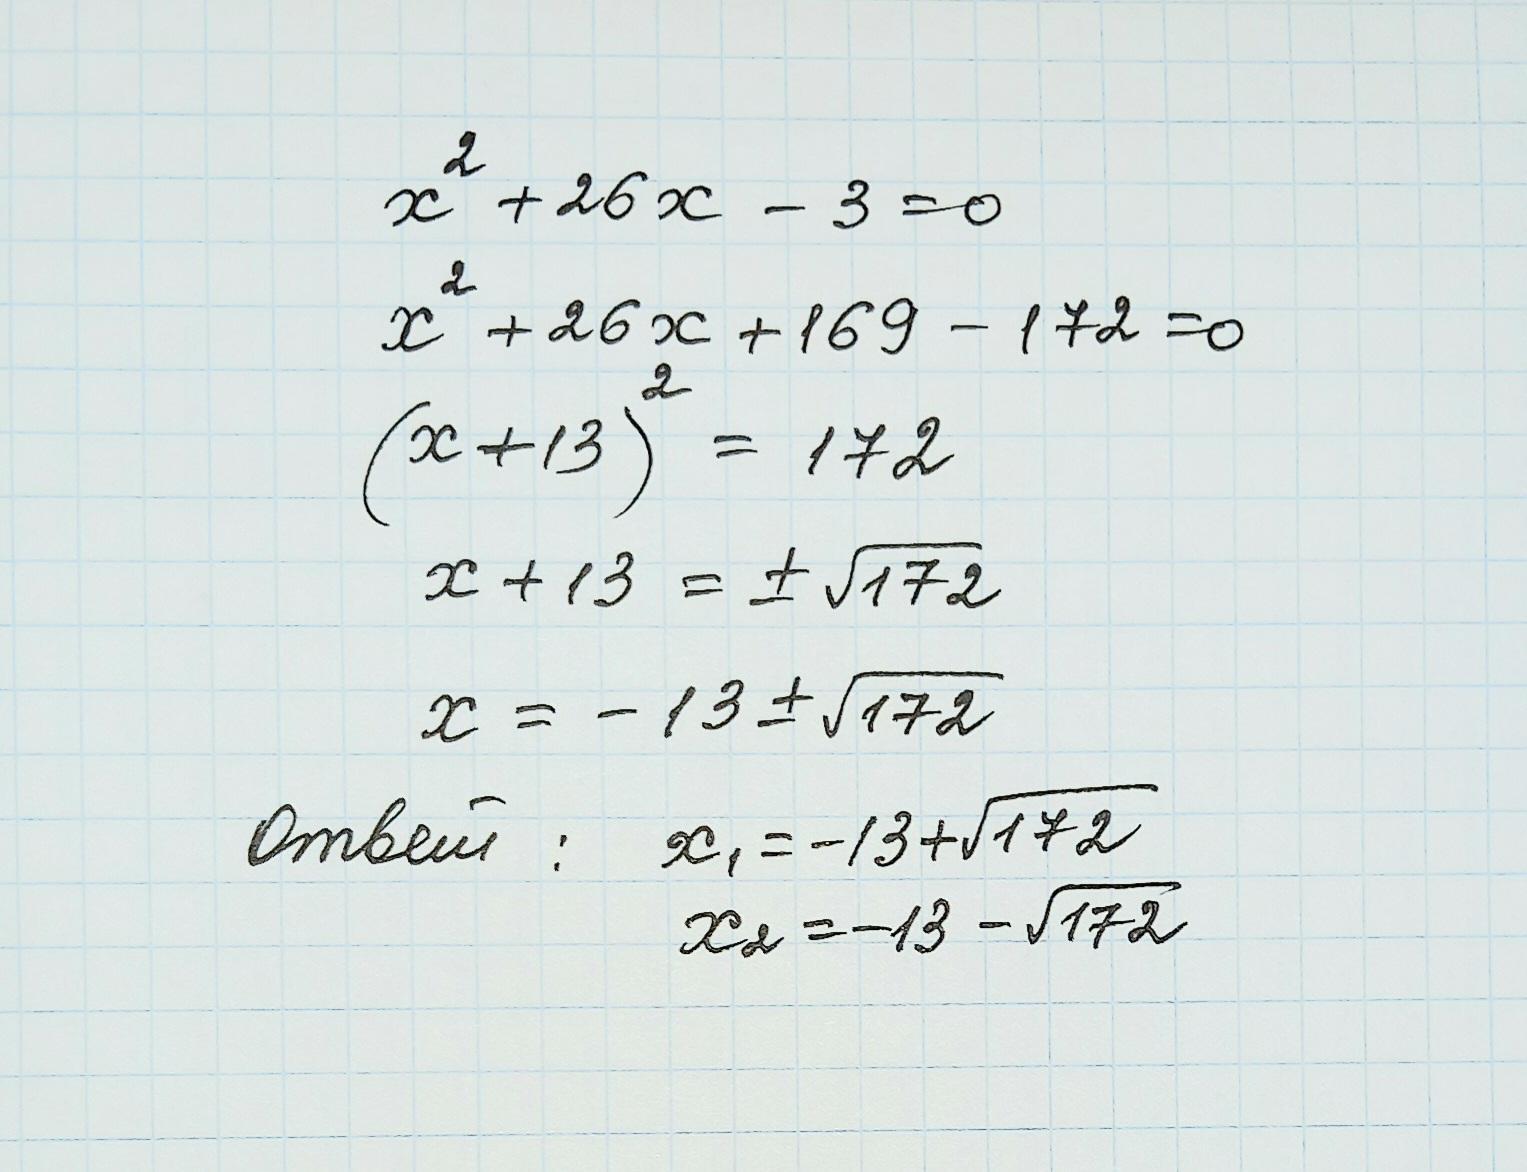 x² + 26x - 3 = 0
x² + 26x + 169 - 172 = 0
(x + 13)² = 172
x + 13 = ± √172
x = - 13 ± √172
Ответ : x₁ = -13 + √172
x₂ = -13 - √172